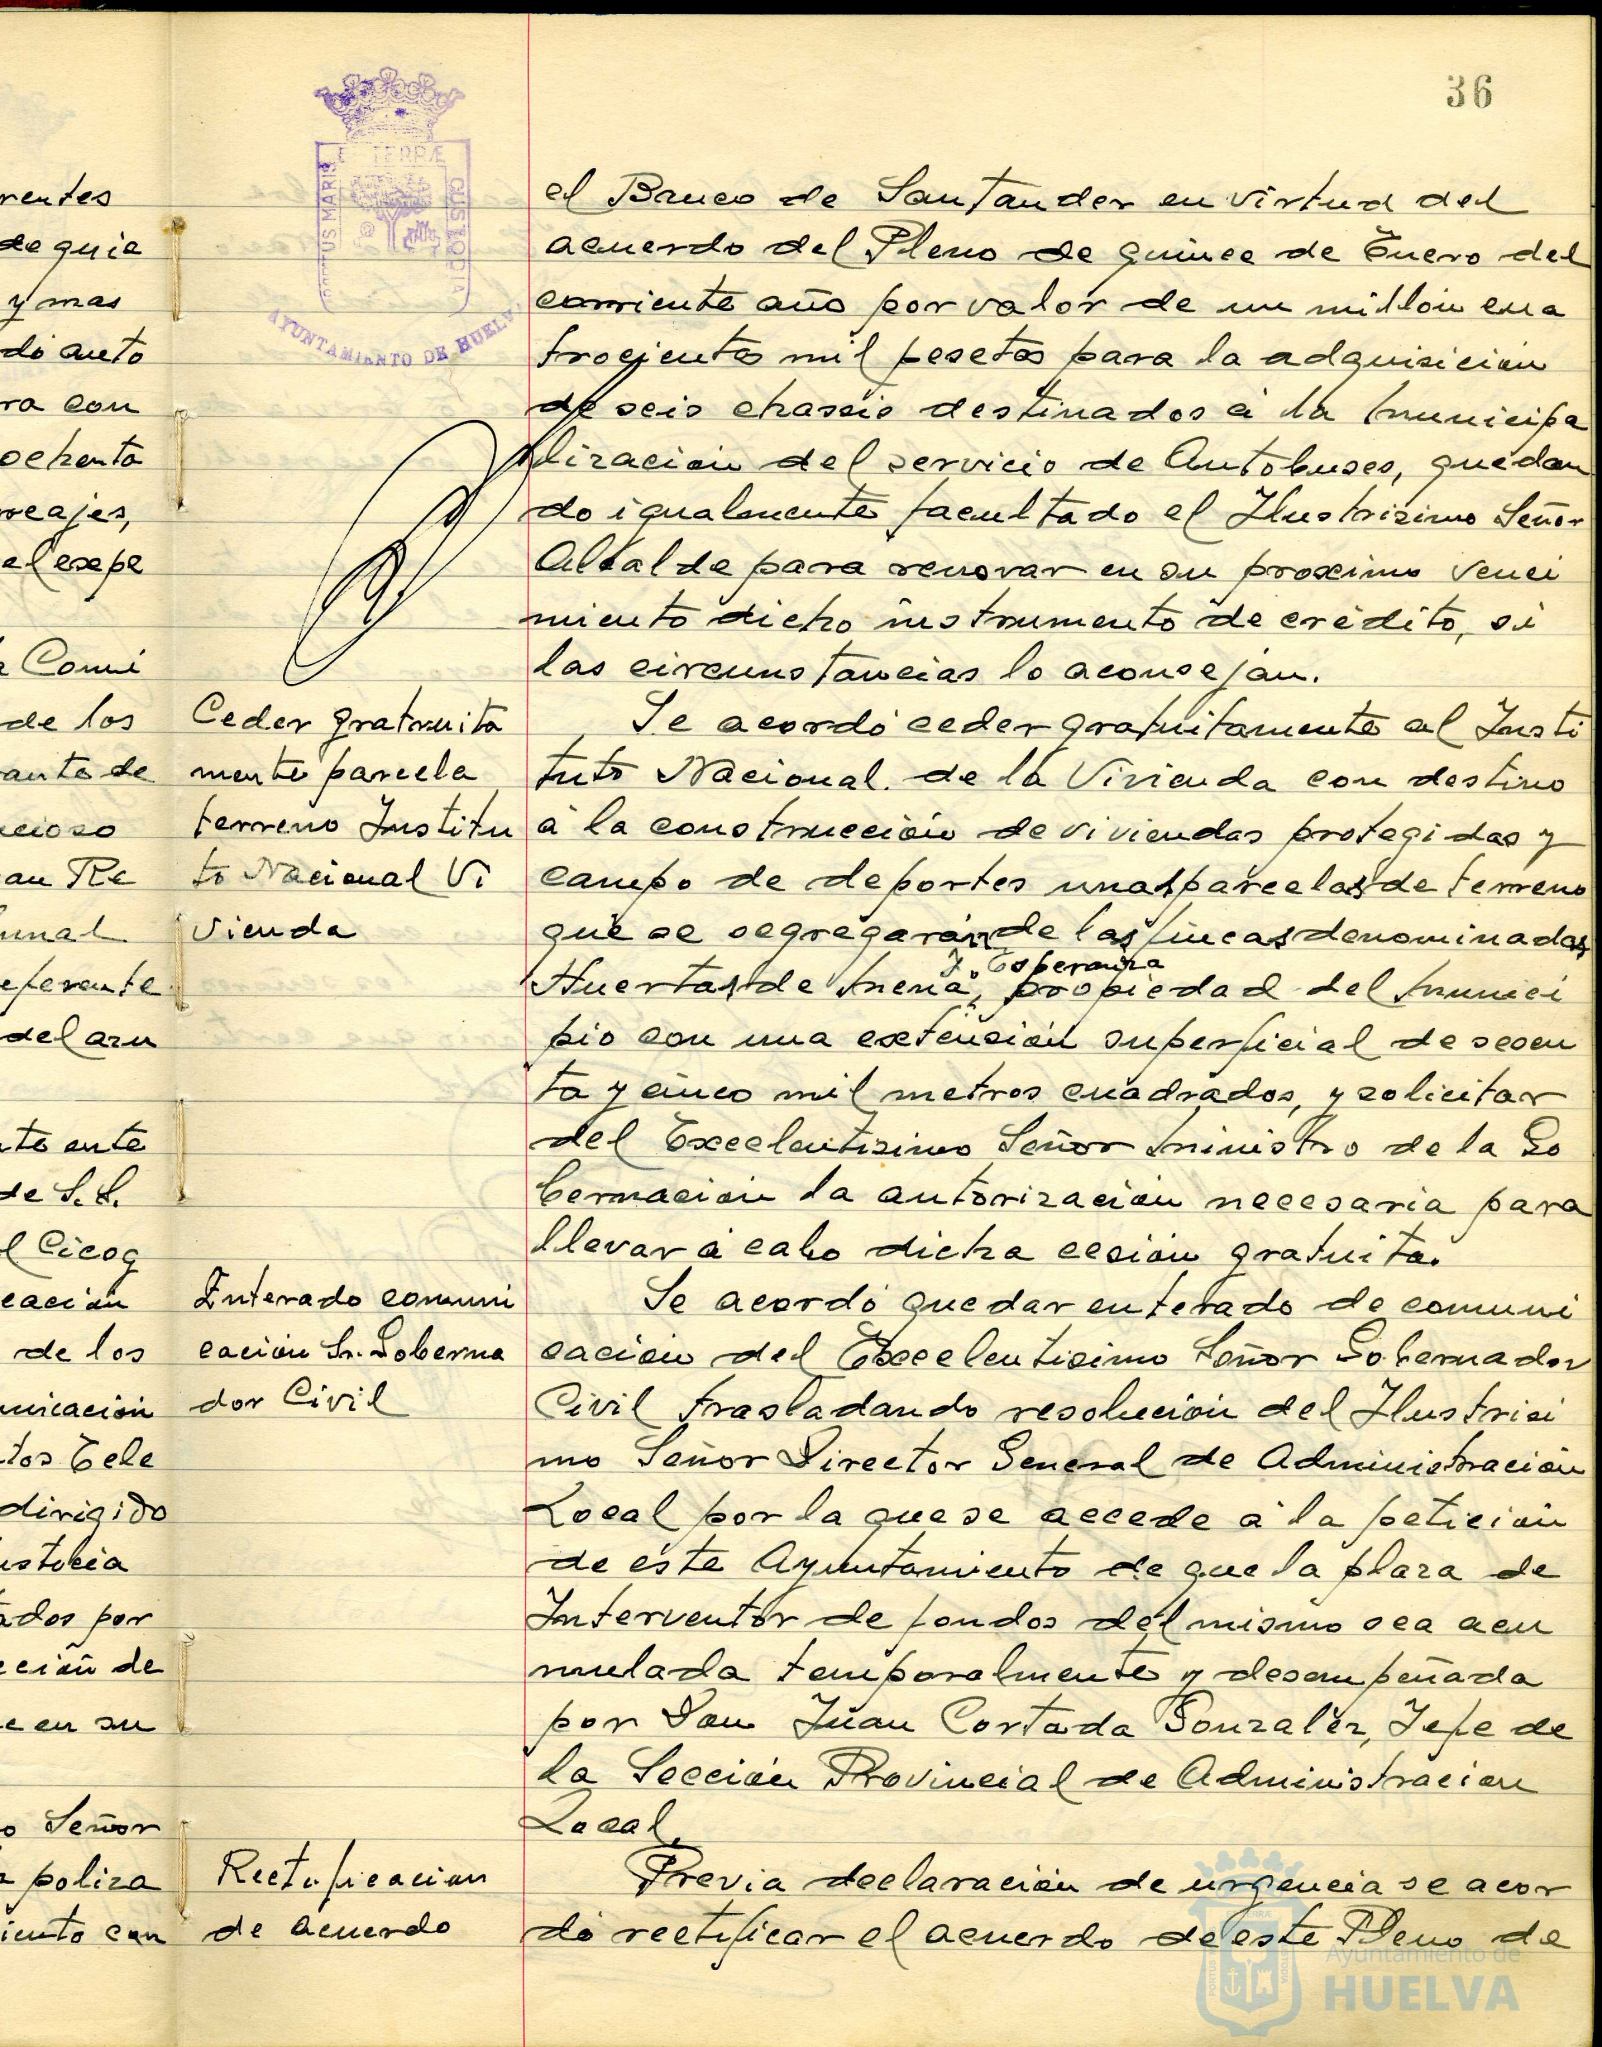 36
PORTUS MARIS ET TERRÆ CUSTODIA
AYUNTAMIENTO DE HUELVA
rentes
de quie
y mas
dó auto
ra con
ochenta
reajes,
el expe
Comi
de los
ante de
cioso
an Re
unal
eferente
del azu
nto ente
de S.S.
l Cicog
cación
de los
unicación
tos Cele
dirigido
usticia
ados por
cción de
e en su
o Señor
poliza
iento con
el Banco de Santander en virtud del
acuerdo del Pleno de quince de Enero del
corriente año por valor de un millón cua
trocientas mil pesetas para la adquisición
de seis chassis destinados á la municipa
lización del servicio de Autobuses, quedan
do igualmente facultado el Ilustrisimo Señor
Alcalde para renovar en su proximo venci
miento dicho instrumento de crédito, si
las circunstancias lo aconsejan.
Ceder gratuita
mente parcela
terreno Institu
to Nacional Vi
vienda
Se acordó ceder gratuitamente al Insti
tuto Nacional de la Vivienda con destino
á la construcción de viviendas protegidas y
campo de deportes unas parcelas de terreno
que se segregarán de las fincas denominadas
y Esperanza
Huertas de Mena, propiedad del Munici
pio con una extensión superficial de sesen
ta y cinco mil metros cuadrados, y solicitar
del Excelentisimo Señor Ministro de la Go
bernación la autorización necesaria para
llevar á cabo dicha cesión gratuita.
Enterado comuni
cación Sr. Goberna
dor Civil
Se acordó quedar enterado de comuni
cación del Excelentisimo Señor Gobernador
Civil trasladando resolución del Ilustrisi
mo Señor Director General de Administración
Local por la que se accede á la petición
de este Ayuntamiento de que la plaza de
Interventor de fondos del mismo sea acu
mulada temporalmente y desempeñada
por Don Juan Cortada Gonzalez, Jefe de
la Sección Provincial de Administración
Local.
Rectificacion
de acuerdo
Previa declaración de urgencia se acor
dó rectificar el acuerdo de este Pleno de
Ayuntamiento de
HUELVA